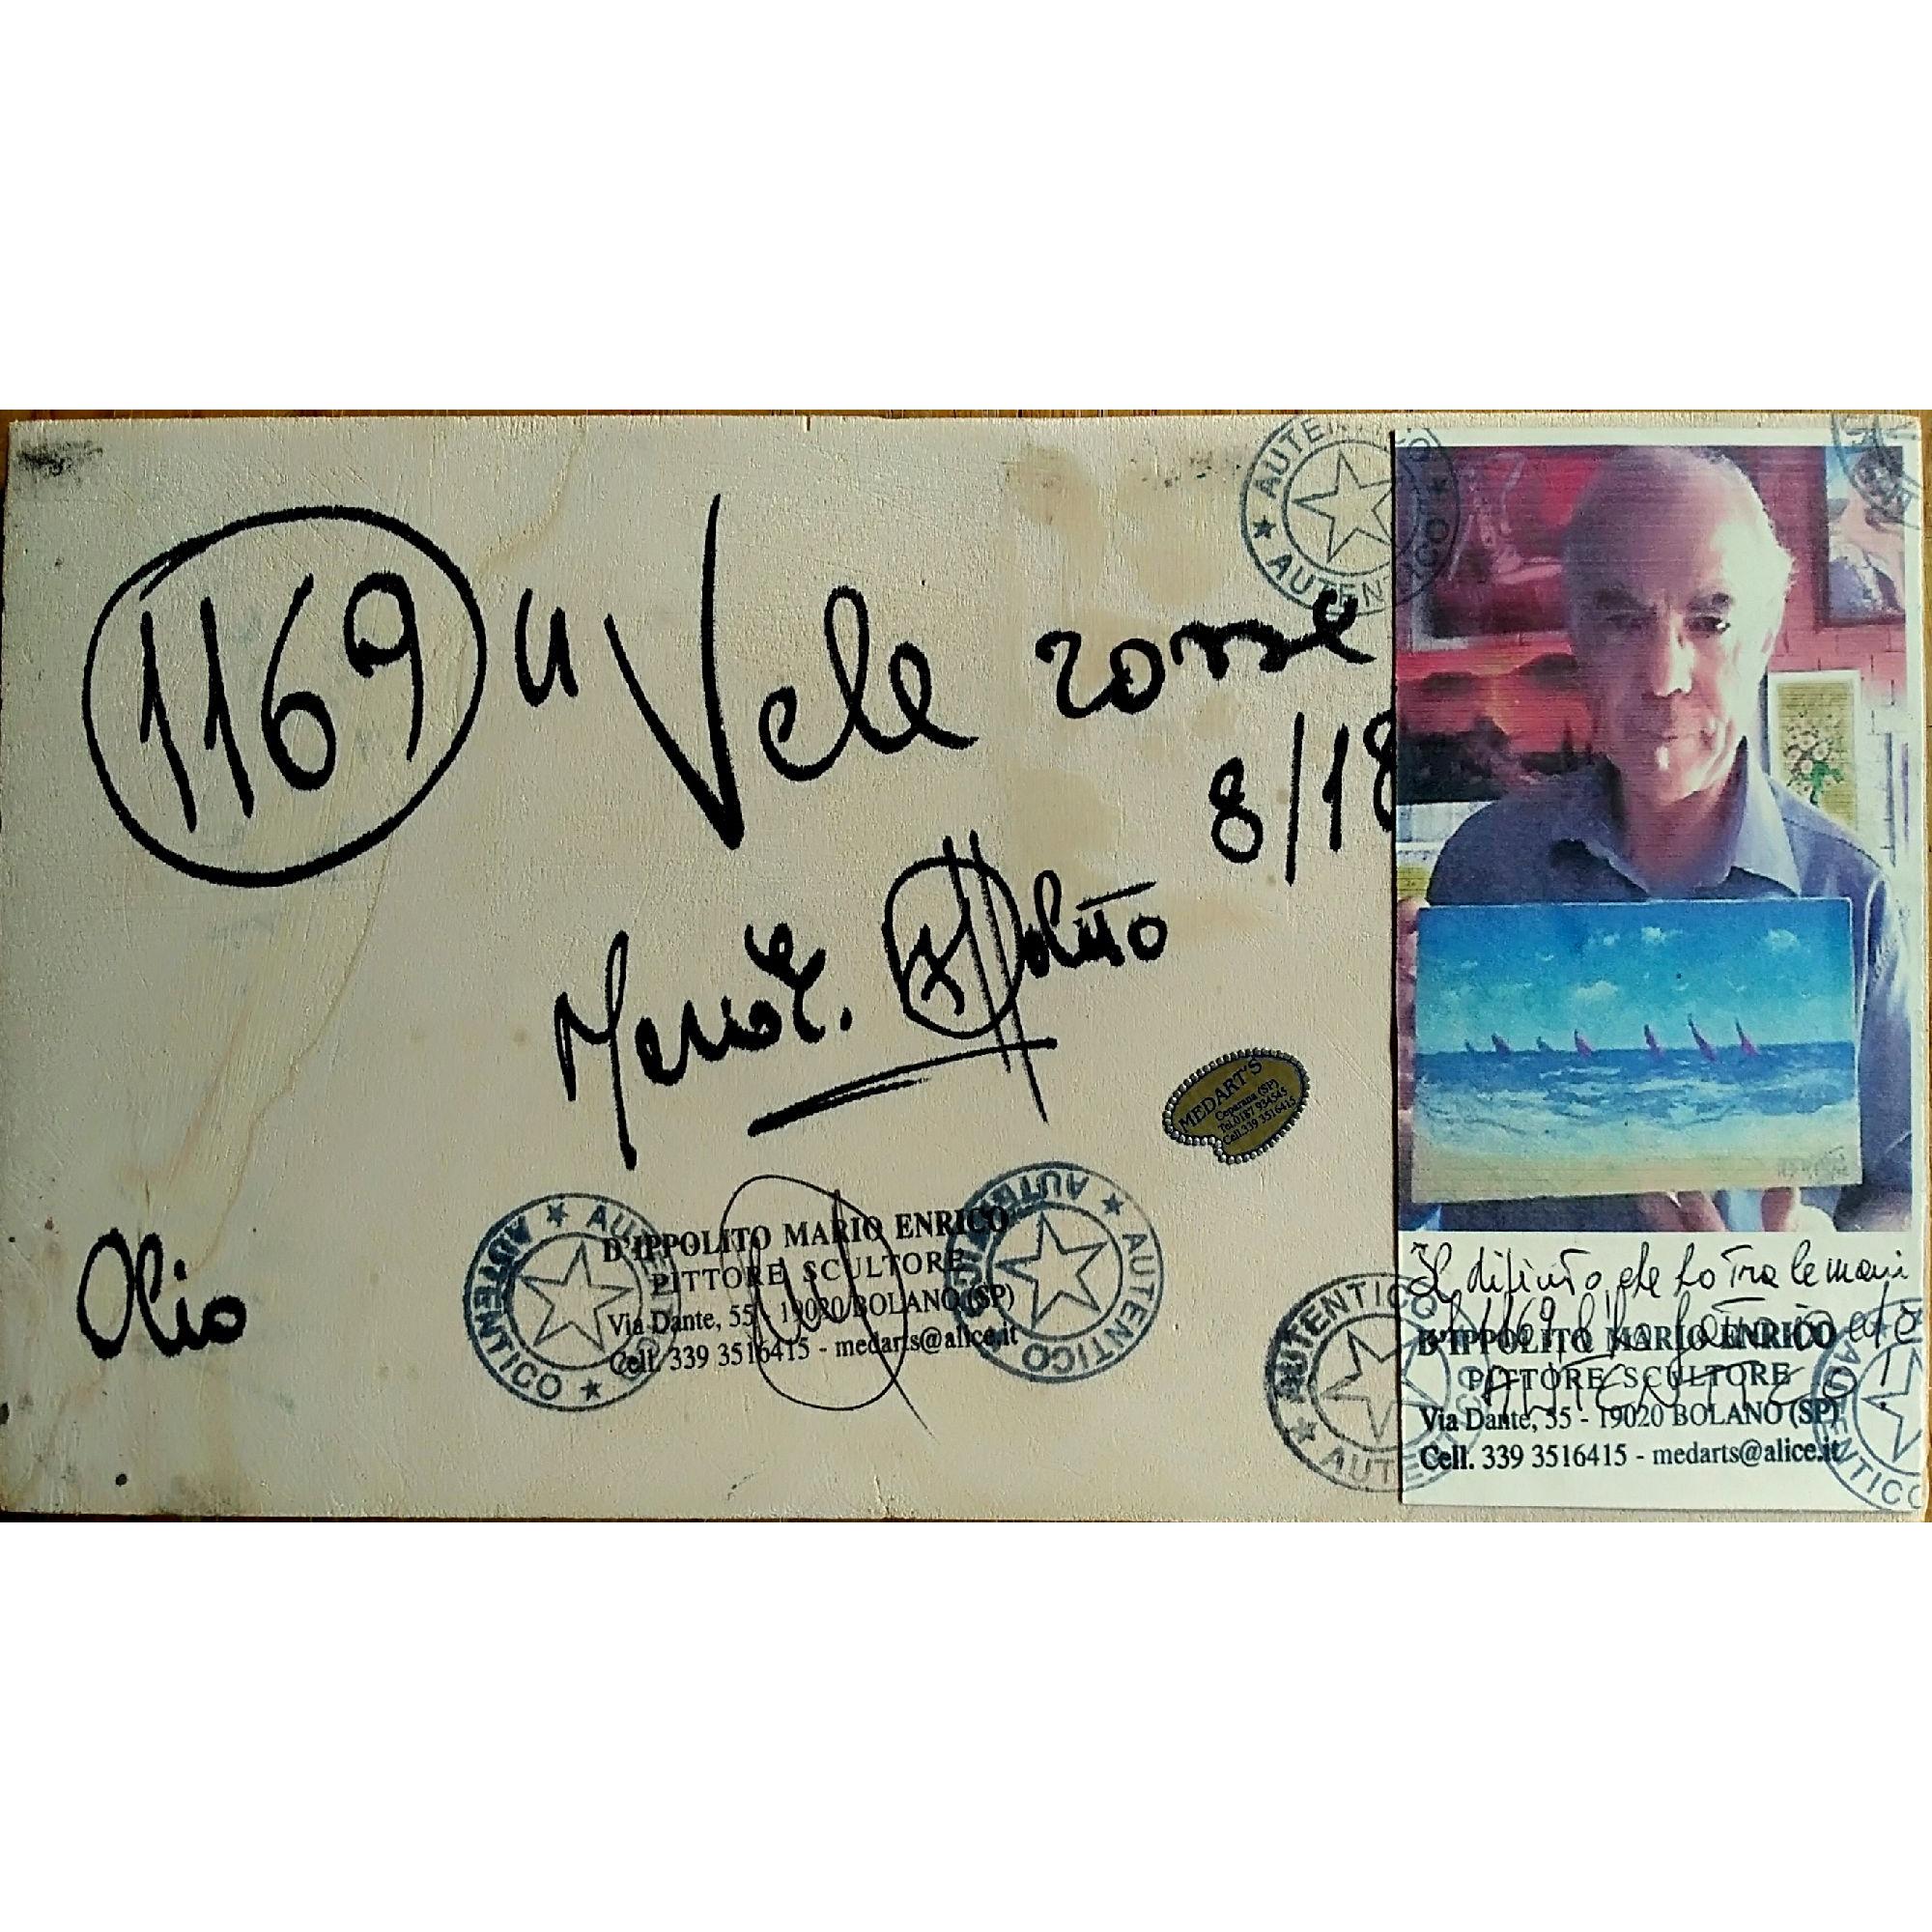 1169 " Vele rosse
8/18
Mario E. D'Ippolito
Olio
MEDART'S
Ceparana (SP)
Tel.0187 934545
Cell.339 3516415
AUTENTICO ★ AUTENTICO ★
AUTENTICO ★ AUTENTICO ★
D'IPPOLITO MARIO ENRICO
PITTORE SCULTORE
Via Dante, 55 - 19020 BOLANO (SP)
Cell. 339 3516415 - medarts@alice.it
AUTENTICO ★ AUTENTICO ★
AUTENTICO ★ AUTENTICO
Il dipinto, che ho tra le mani
1169 ed è
AUTENTICO
D'IPPOLITO MARIO ENRICO
PITTORE SCULTORE
Via Dante, 55 - 19020 BOLANO (SP)
Cell. 339 3516415 - medarts@alice.it